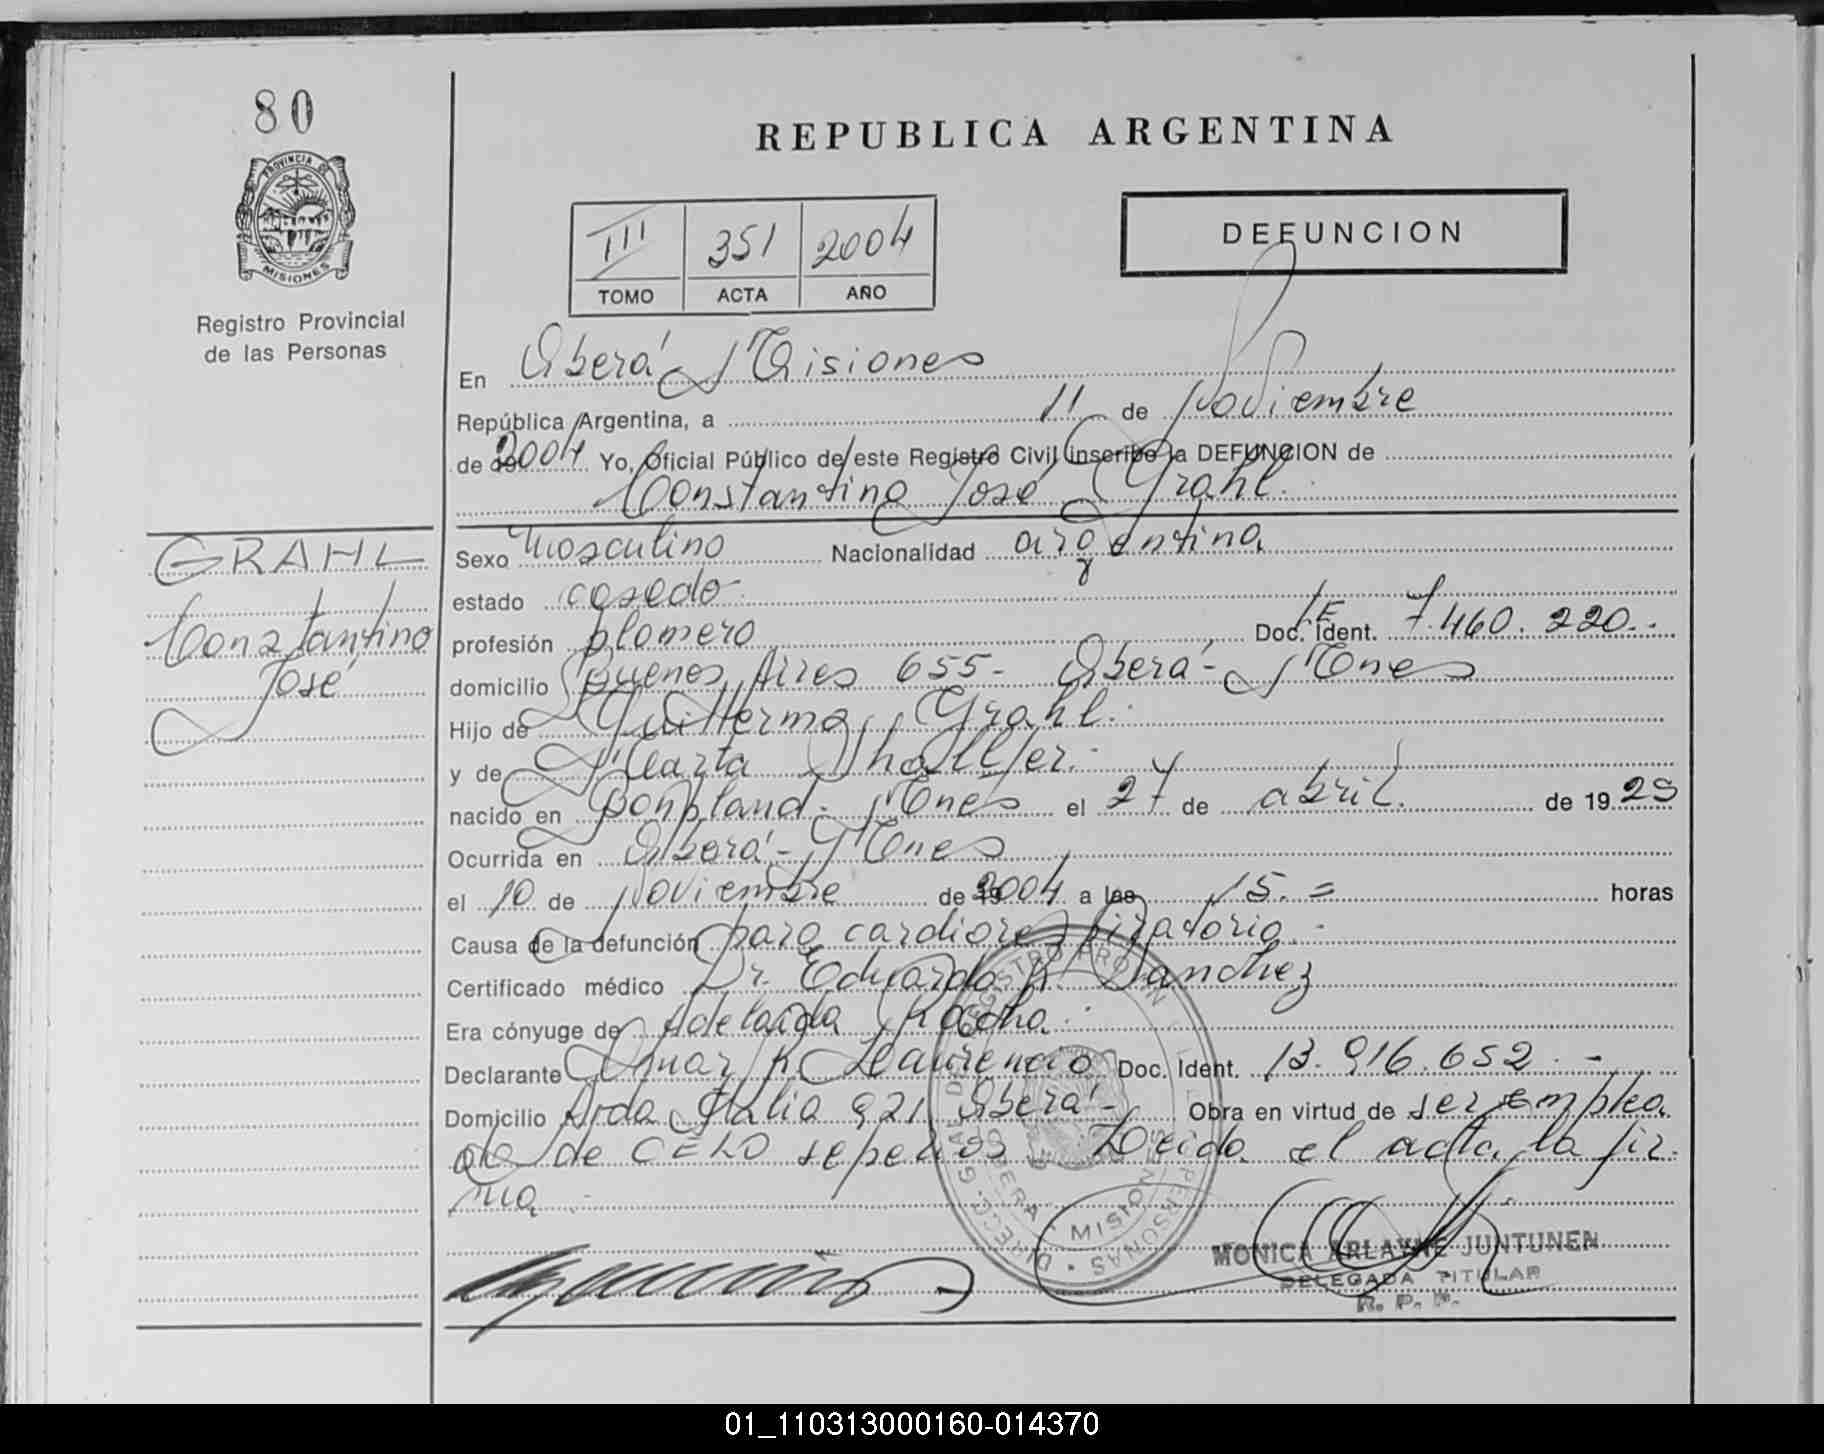 80
PROVINCIA DE
MISIONES
Registro Provincial
de las Personas
REPUBLICA ARGENTINA
III 351 2004
TOMO ACTA AÑO
DEFUNCION
En Oberá Misiones
República Argentina, a 11 de Noviembre
de 2004 Yo, Oficial Público de este Registro Civil inscribo la DEFUNCION de
Constantino José Grahl.
GRAHL
Constantino
José
Sexo masculino Nacionalidad argentina
estado casado
profesión plomero Doc. Ident. LE 7.460.220.-
domicilio Buenos Aires 655- Oberá- Mnes
Hijo de Guillermo Grahl.
y de Marta
nacido en Bonpland- Mnes el 27 de abril. de 1929
Ocurrida en Oberá- Mnes
el 10 de Noviembre de 2004 a las 15.= horas
Causa de la defunción paro cardiorespiratorio.-
Certificado médico Dr. Eduardo R. Sanchez
Era cónyuge de Adelaida Rocha.
Declarante Omar R. Laurencio Doc. Ident. 13.916.652.-
Domicilio Avda Italia 921 Oberá- Obra en virtud de ser emplea
do de CELO sepelios Leida el acta, la fir-
ma
MONICA ARLAYNE JUNTUNEN
DELEGADA TITULAR
R. P. P.
01_110313000160-014370